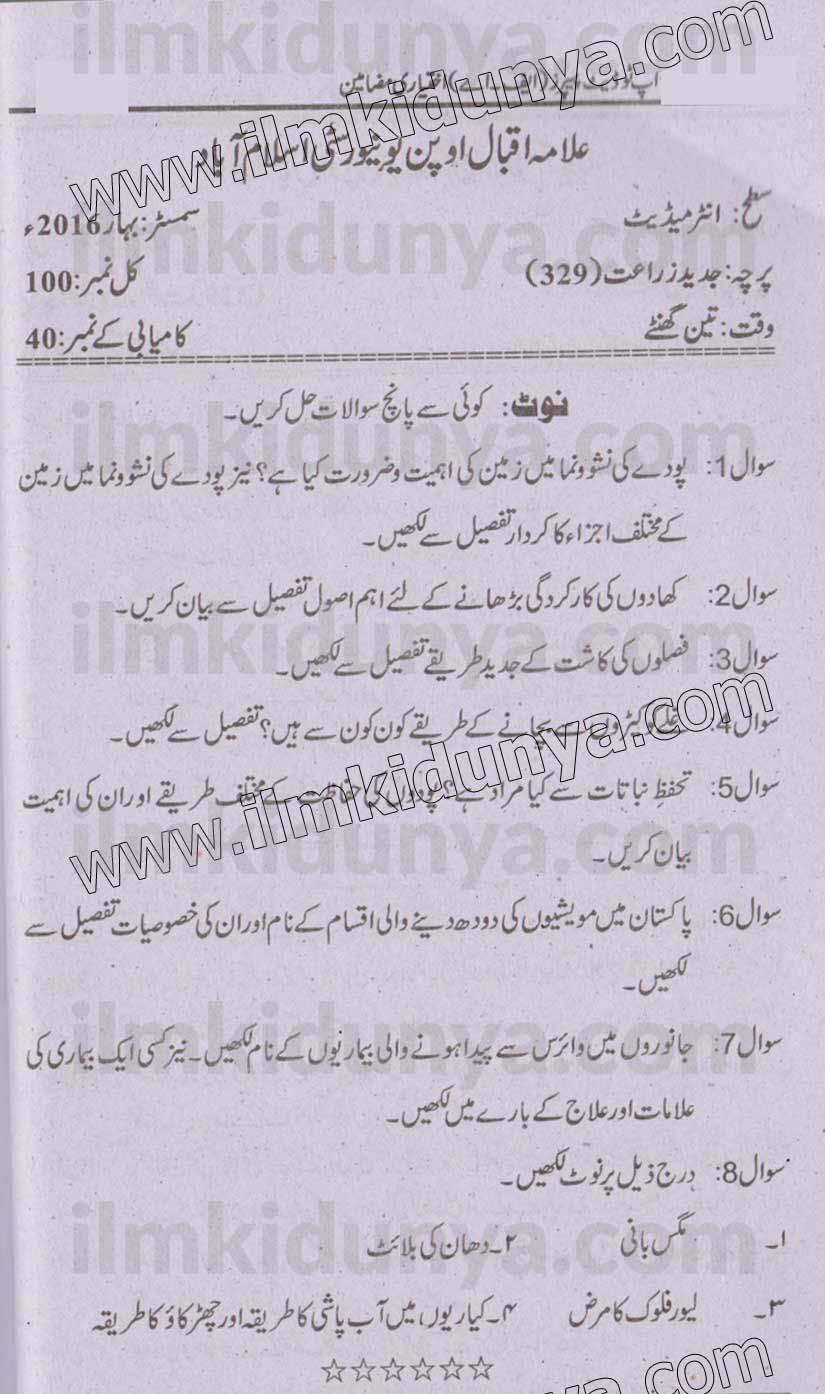 ilmkidunya.com
www.ilmkidunya.com
اپ ٹو ڈیٹ پیپرز (ایف۔اے) اختیاری مضامین
علامہ اقبال اوپن یونیورسٹی اسلام آباد
سطح: انٹرمیڈیٹ سمسٹر: بہار 2016ء
ilmkidunya.com
پرچہ: جدید زراعت (329) کل نمبر: 100
وقت: تین گھنٹے کامیابی کے نمبر: 40
نوٹ: کوئی سے پانچ سوالات حل کریں۔
ilmkidunya.com
سوال 1: پودے کی نشوونما میں زمین کی اہمیت و ضرورت کیا ہے؟ نیز پودے کی نشوونما میں زمین
کے مختلف اجزاء کا کردار تفصیل سے لکھیں۔
سوال 2: کھادوں کی کارکردگی بڑھانے کے لئے اہم اصول تفصیل سے بیان کریں۔
ilmkidunya.com
سوال 3: فصلوں کی کاشت کے جدید طریقے تفصیل سے لکھیں۔
سوال 4: غلے کو کیڑوں سے بچانے کے طریقے کون کون سے ہیں؟ تفصیل سے لکھیں۔
www.ilmkidunya.com
سوال 5: تحفظِ نباتات سے کیا مراد ہے؟ پودوں کی حفاظت کے مختلف طریقے اور ان کی اہمیت
بیان کریں۔
ilmkidunya.com
سوال 6: پاکستان میں مویشیوں کی دودھ دینے والی اقسام کے نام اور ان کی خصوصیات تفصیل سے
لکھیں۔
ilmkidunya.com
سوال 7: جانوروں میں وائرس سے پیدا ہونے والی بیماریوں کے نام لکھیں۔ نیز کسی ایک بیماری کی
علامات اور علاج کے بارے میں لکھیں۔
سوال 8: درج ذیل پر نوٹ لکھیں۔
ilmkidunya.com
۱۔ مگس بانی ۲۔ دھان کی بلائٹ
۳۔ لیور فلوک کا مرض ۴۔ کیاریوں، میں آب پاشی کا طریقہ اور چھڑکاؤ کا طریقہ
☆☆☆☆☆☆